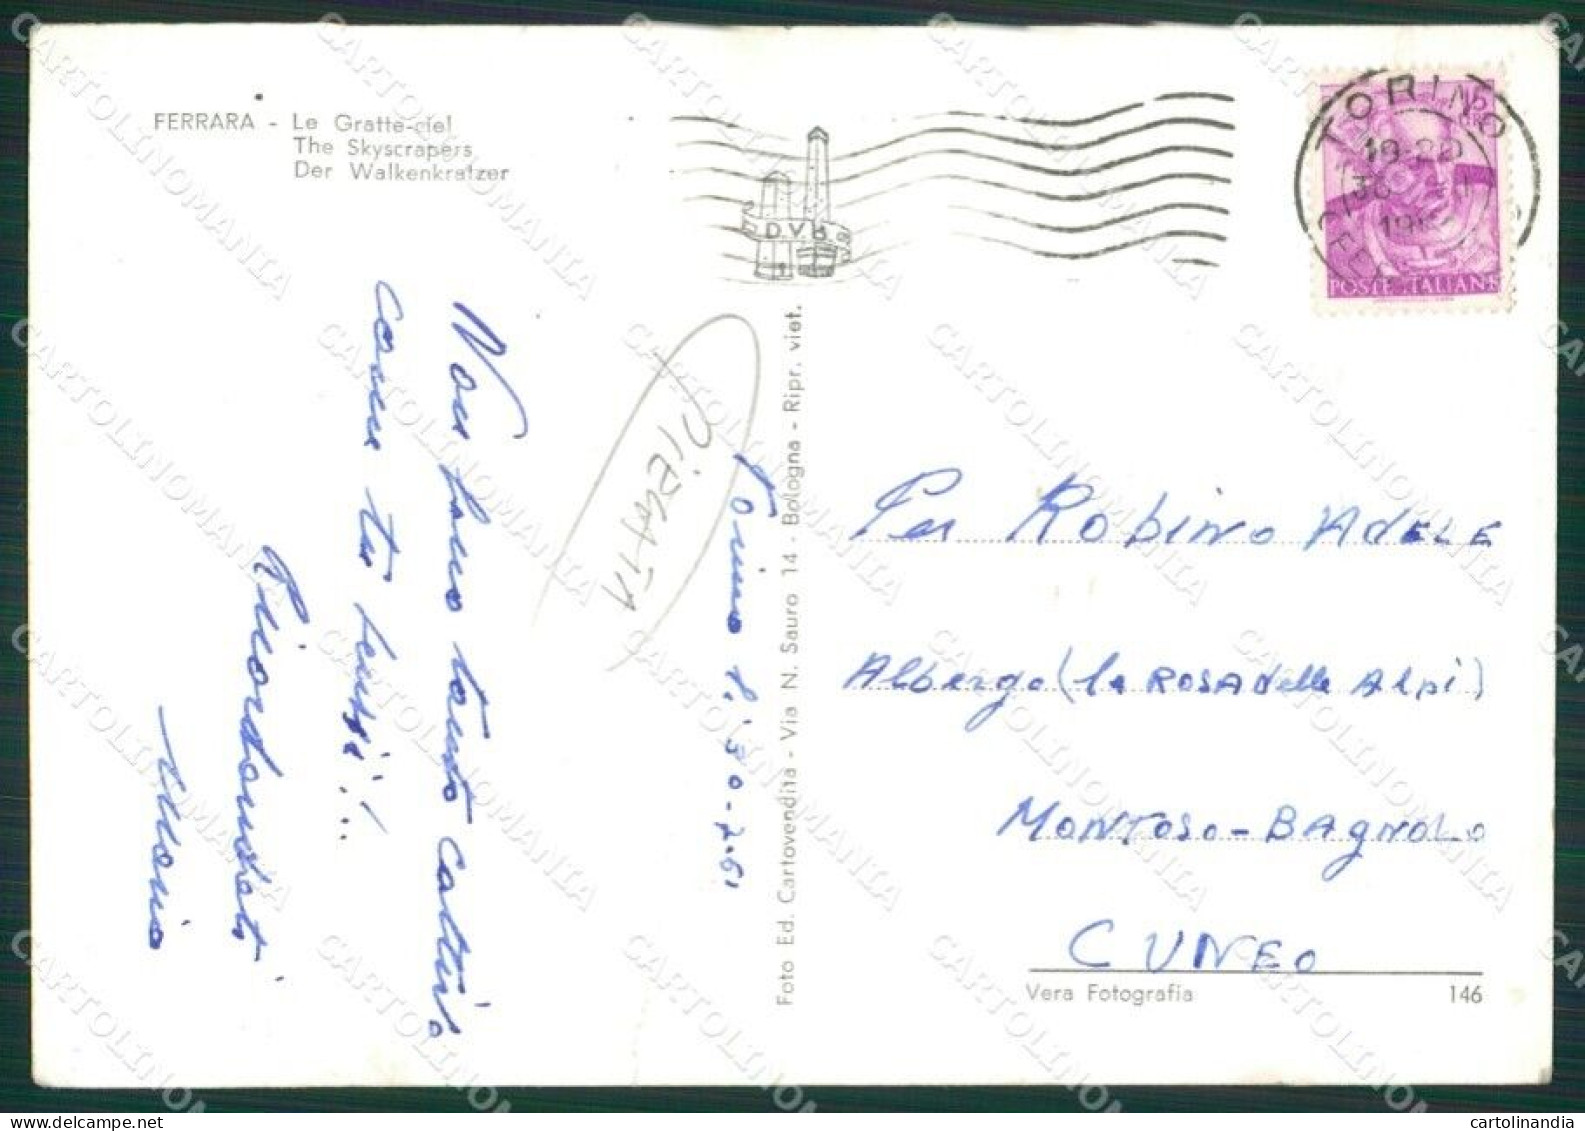 FERRARA - Le Gratte-ciel
The Skyscrapers
Der Walkenkratzer
TORINO
19-20
30
POSTE ITALIANE
Non sono tanto cattivo
come tu pensi!..
Ricordandoti
Mario
PIEGATA
Torino l. 30-7-61
Foto Ed. Cartovendita - Via N. Sauro 14 - Bologna - Ripr. viet.
Per Robino ADELE
Albergo (la ROSA delle Alpi)
MONTOSO - BAGNOLO
CUNEO
Vera Fotografia 146
CARTOLINOMANIA
cartolinandia